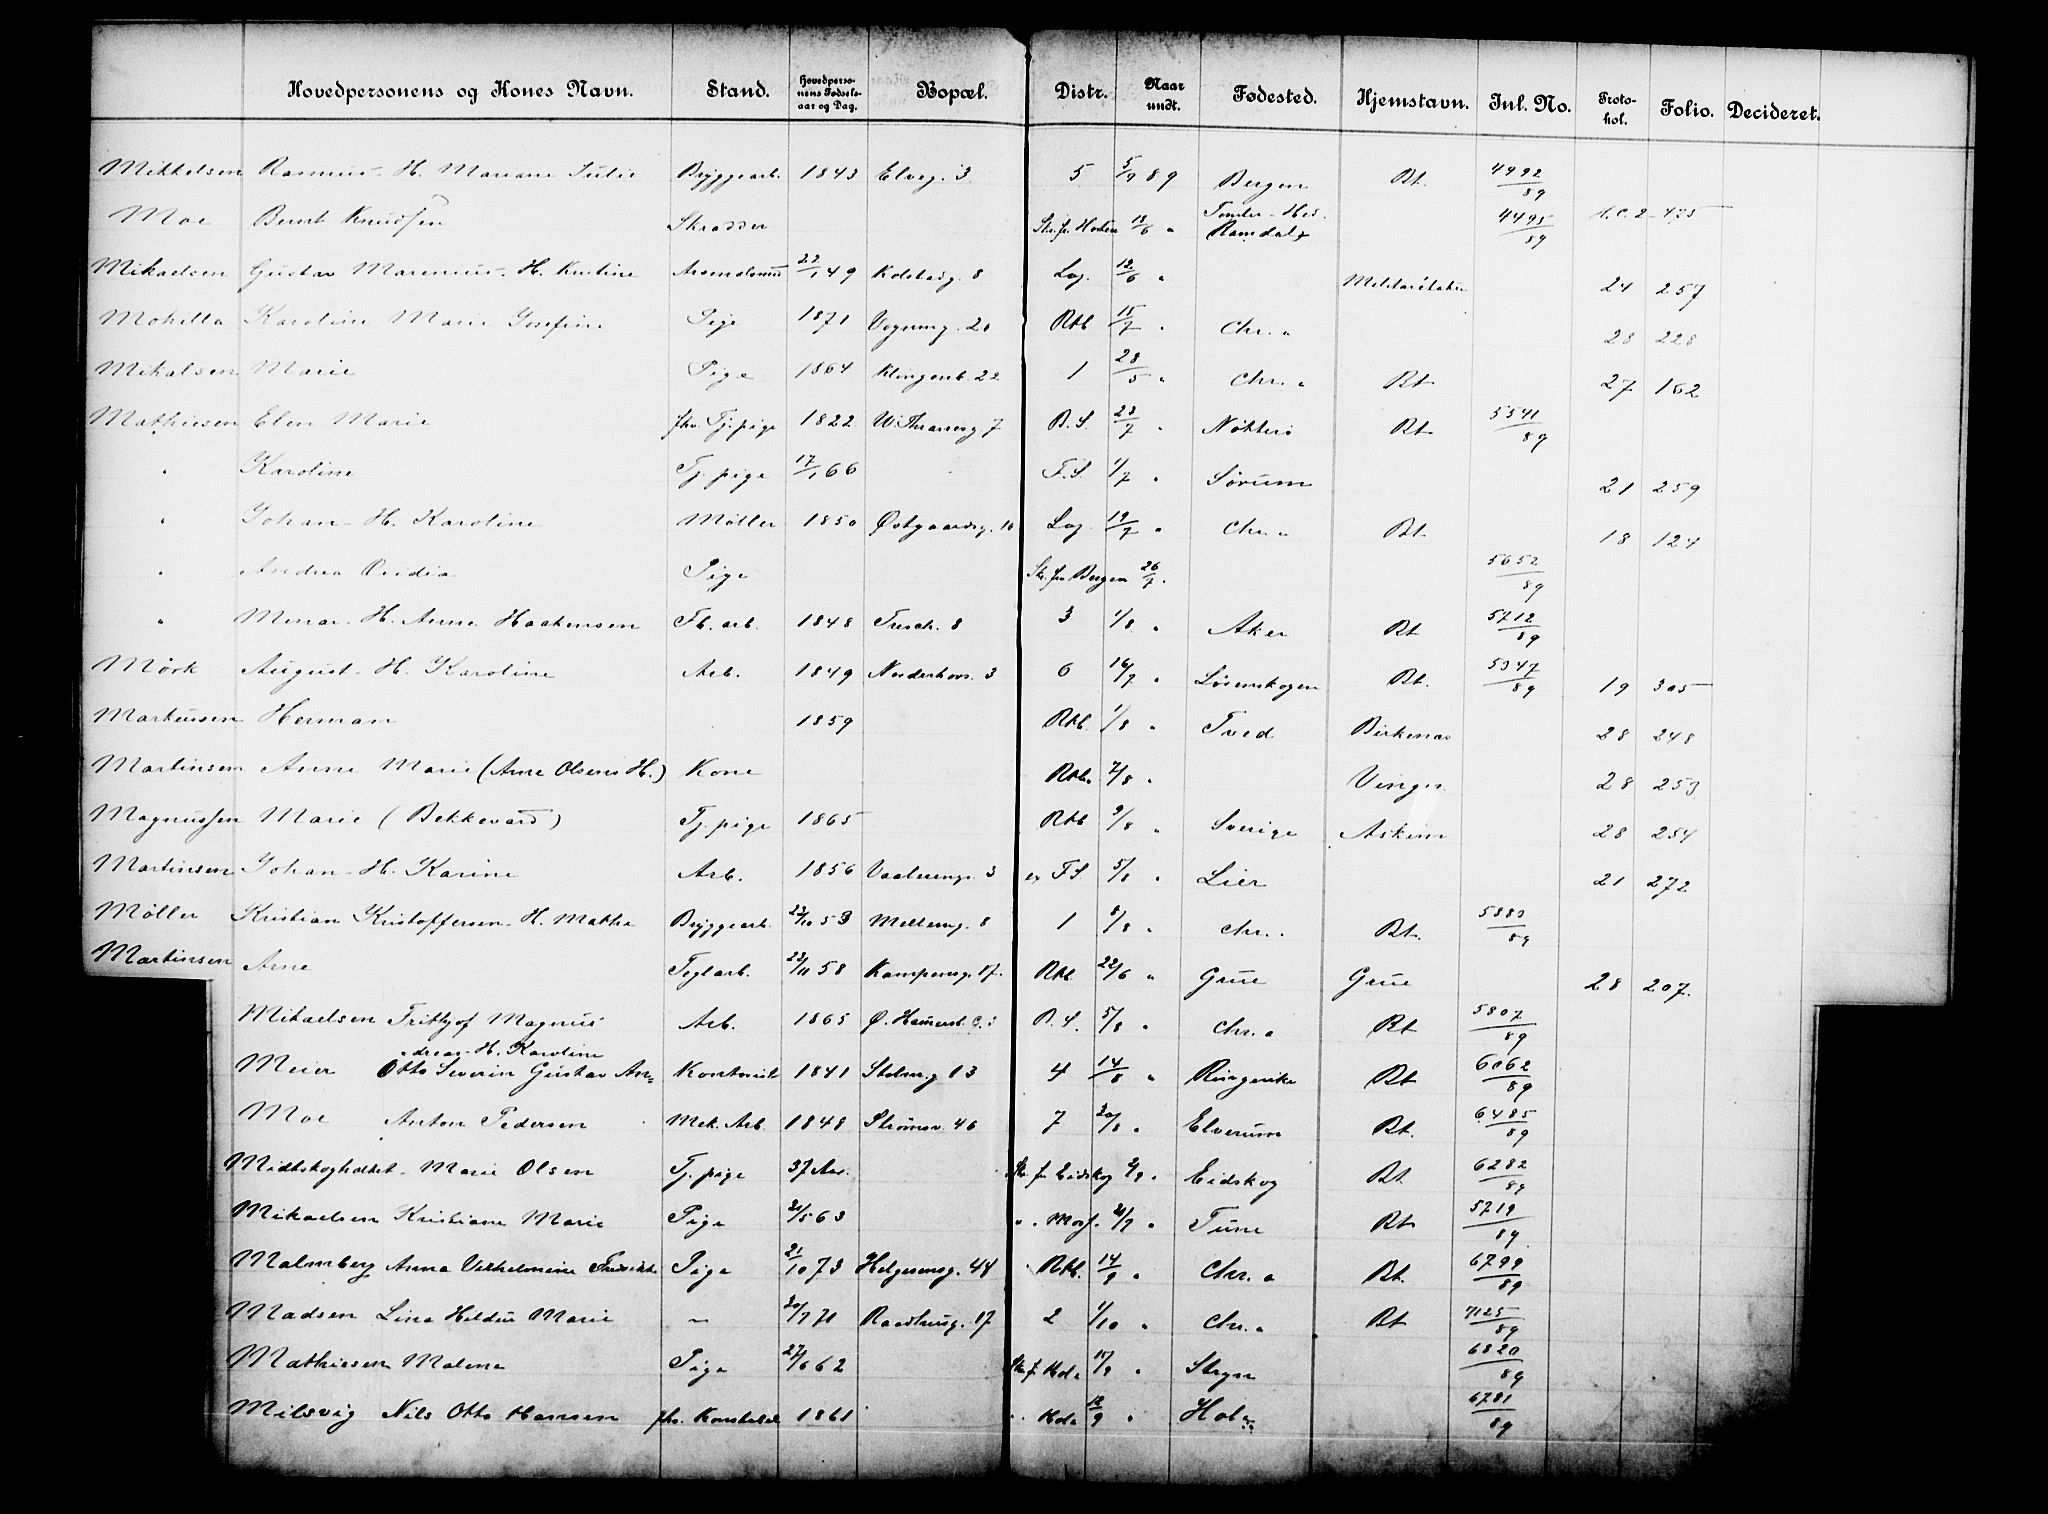 Hovedpersonens og Kones Navn. Stand. Hovedperso-nens Fødsels-aar og Dag. Bopæl. Distr. Naar undt. Fødested. Hjemstavn. Jnl. No. Proto-kol. Folio. Decideret.
Mikkelsen Rasmus - H. Mariane Julie Bryggearb. 1843 Elveg. 3 5 5/9 89 Bergen Bt. 4992/89
Moe Bernt Knudsen Skrædder Skr. fr. Horten 13/6 " Romdal 4495/89 H.C. 2 - 475
Mikaelsen Gustav Marenius - H. Kristine 22/1 49 Kolstadg. 8 Lag. 12/6 " 24 257
Karoline Marie Josefine Pige 1871 Vognmg. 20 Rkb 15/7 " Chr.a 28 228
Mikalsen Marie Pige 1864 Klingenb. 22 1 28/5 " Chr.a Bt. 27 162
Mathiesen Elen Marie fhv. Tj. pige 1822 W. Thranesg. 7 B.S. 23/7 " Nøtterø Bt. 5541/89
" Karoline Tj. pige 17/1 66 F.S. 1/7 " Sørum 21 259
" Johan - H. Karoline Møller 1850 Østgaardsg. 10 Lag. 19/7 " Chr.a Bt. 18 124
" Andrea Ovidia Pige Skr. fra Bergen 26/7 " 5652/89
" Minar - H. Anne Haakensen Fb. arb. 1848 Tresch. 8 3 1/8 " Aker Bt. 5712/89
Mørk August - H. Karoline Arb. 1849 Norderhovs. 3 6 16/7 " Løvenskogen Bt. 5347/89 19 305
Markussen Herman 1859 Rkb. 1/8 " Tved Birkenæs 28 248
Martinsen Anne Marie (Arne Olsens H.) Kone Rkb. 7/8 " Vinger 28 253
Magnussen Marie (Bekkevard) Tj. pige 1865 Rkb 9/8 " Sverige Askem 28 254
Martinsen Johan - H. Karine Arb. 1856 Vaalereng. 3 F.S. 5/8 " Lier 21 272
Møller Kristian Kristoffersen - H. Mathea Bryggearb. 23/10 53 Mellemg. 8 1 8/8 " Chr.a Bt. 5883/89
Martinsen Arne Teglarb. 23/11 58 Kampensg. 17. Rkb 22/6 " Grue Grue 28 207.
Mikaelsen Fritjof Magnus Arb. 1865 Ø. Hammersb. G. 3 B.S. 5/8 " Chr.a Bt. 5807/89
dreas - H. Karoline
Meier Otto Severin Gustav An= Kontorist 1841 Stolmg. 13 4 14/8 " Ringerike Bt. 6062/89
Moe Anton Pedersen Mek. Arb. 1848 Strømsv. 46 7 20/8 " Elverum Bt. 6485/89
Midtskogholtet - Marie Olsen Tj. pige 37 Aar. Skr. f. Eidskog 2/9 " Eidskog Bt. 6282/89
Mikaelsen Kristiane Marie Pige 2/5 63 " " Moss 2/9 " Tune Bt. 5719/89
Malmberg Anna Vilhelmine Fredrikke Pige 21/10 73 Helgesensg. 44 Rkb. 14/9 " Chr.a Bt. 6799/89
Madsen Lina Hildur Marie " 20/7 71 Raadhusg. 17 2 1/10 " Chr.a Bt. 7125/89
Mathiesen Malene Pige 27/6 62 Skr. f. Hole 15/9 " Stryn 6820/89
Milsvig Nils Otto Hansen fhv. Konstabel 1861 " " Hole 12/9 " Hole 6781/89